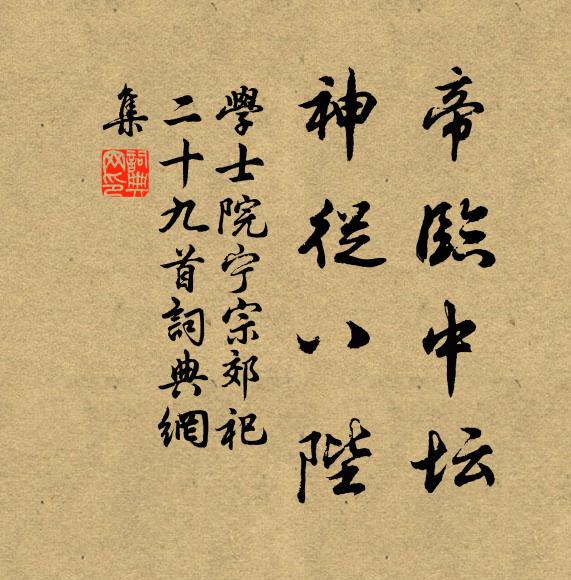 帝臨中坛
神從八陛
學士院宁宗郊祀
二十九首詞典網
集
詞典
网印